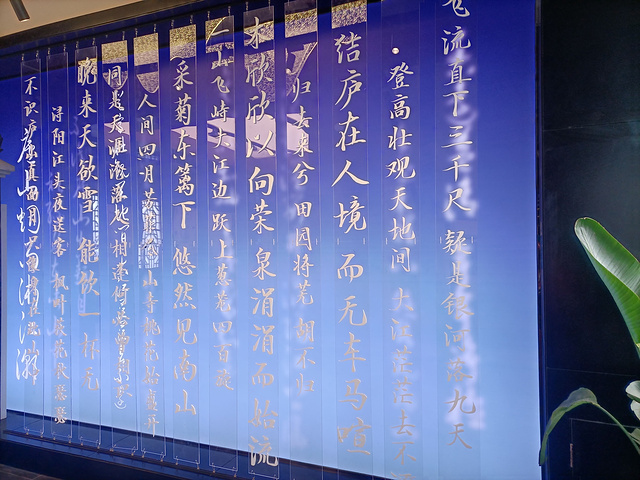 飞流直下三千尺 疑是银河落九天
登高壮观天地间 大江茫茫去不
结庐在人境 而无车马喧
归去来兮 田园将芜 胡不归
木欣欣以向荣 泉涓涓而始流
山飞峙大江边 跃上葱茏四百旋
采菊东篱下 悠然见南山
人间四月芳菲 山寺桃花始盛开
同是天涯沦落人 相逢何必曾相识
晚来天欲雪 能饮一杯无
浔阳江头夜送客 枫叶荻花秋瑟瑟
不识庐真面